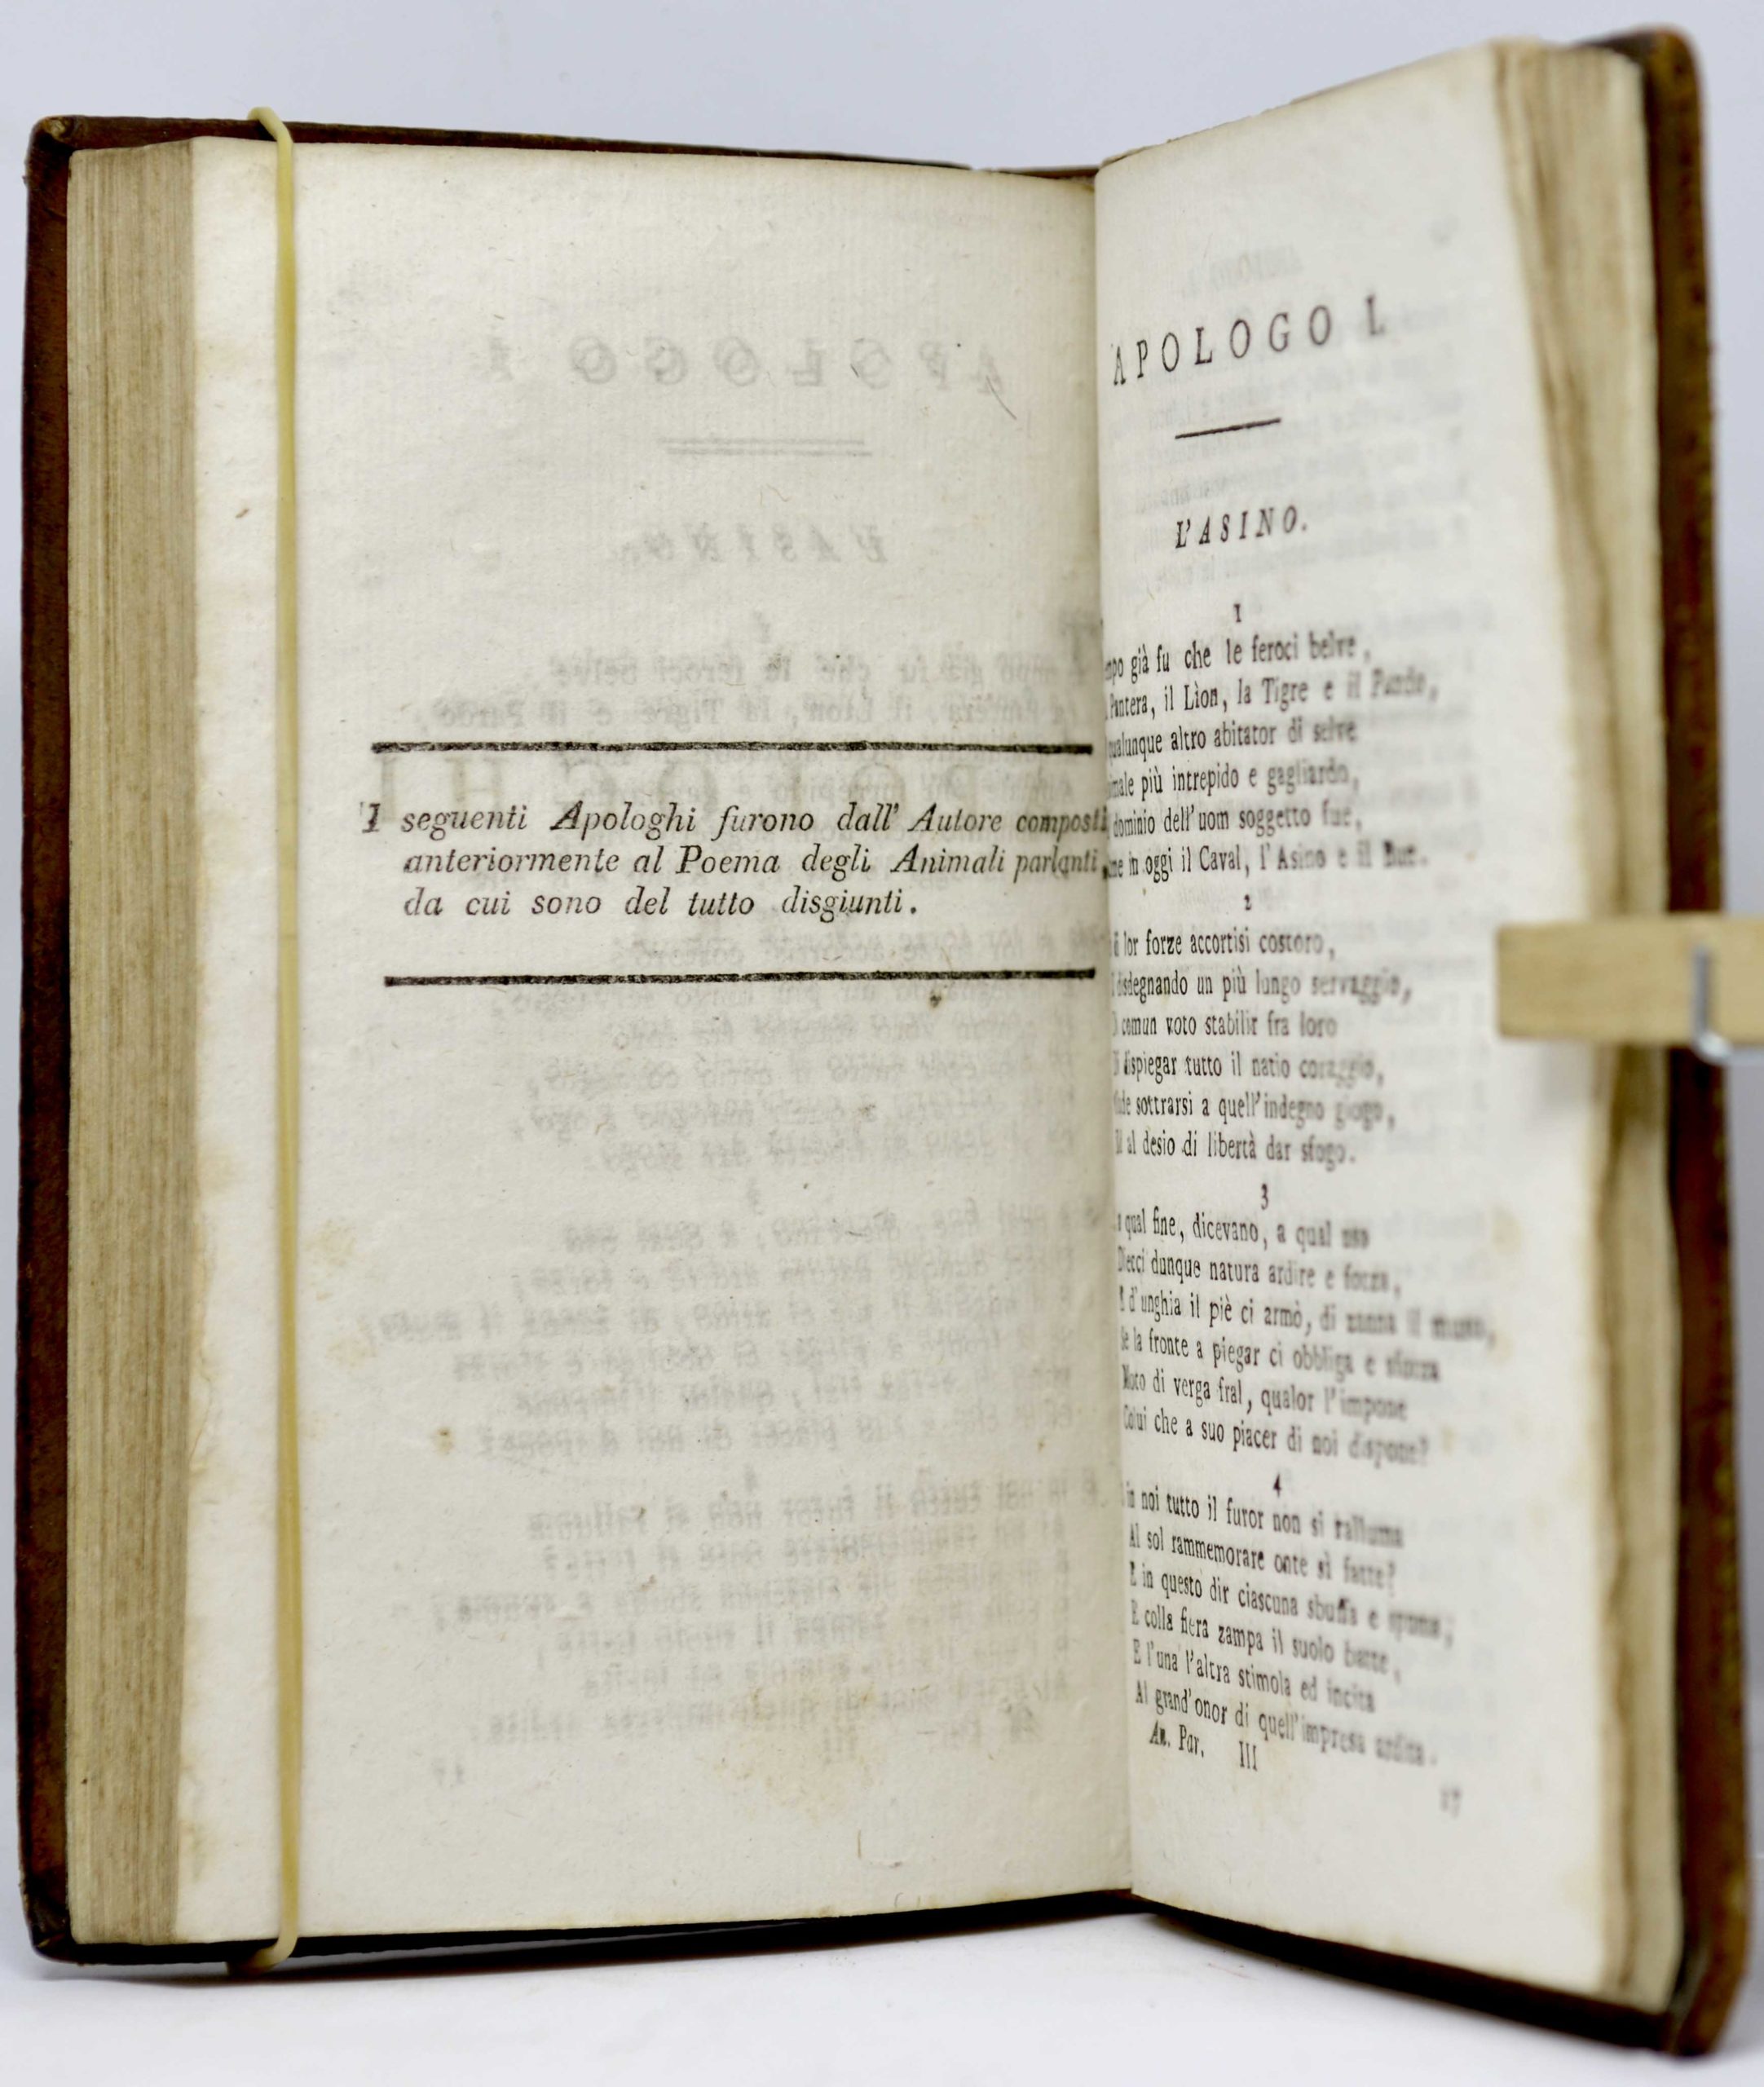 I seguenti Apologhi furono dall' Autore composti
anteriormente al Poema degli Animali parlanti,
da cui sono del tutto disgiunti.
APOLOGO I.
L'ASINO.
1
già fu che le feroci belve,
Pantera, il Lìon, la Tigre e il Pardo,
qualunque altro abitator di selve
più intrepido e gagliardo,
dominio dell'uom soggetto fue,
in oggi il Caval, l'Asino e il Bue.
2
lor forze accortisi costoro,
disdegnando un più lungo servaggio,
comun voto stabilir fra loro
dispiegar tutto il natio coraggio,
sottrarsi a quell'indegno giogo,
al desio di libertà dar sfogo.
3
a qual fine, dicevano, a qual uso
Diecci dunque natura ardire e forza,
E d'unghia il piè ci armò, di zanna il muso,
Se la fronte a piegar ci obbliga e sforza
Moto di verga fral, qualor l'impone
Colui che a suo piacer di noi dispone?
4
in noi tutto il furor non si ralluma
Al sol rammemorare onte sì fatte?
E in questo dir ciascuna sbuffa e spuma,
E colla fiera zampa il suolo batte,
E l'una l'altra stimola ed incita
Al grand'onor di quell'impresa ardita.
An. Par. III
17